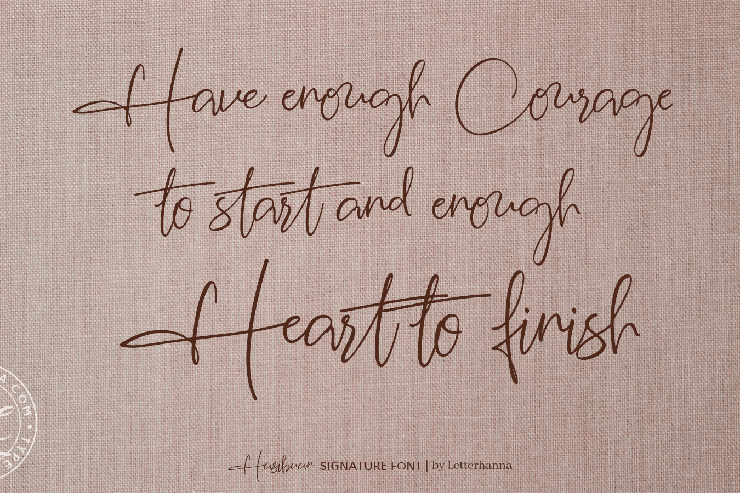 Have enough Courage
to start and enough
Heart to finish
SIGNATURE FONT | by Letterhanna
A.COM * TYPE